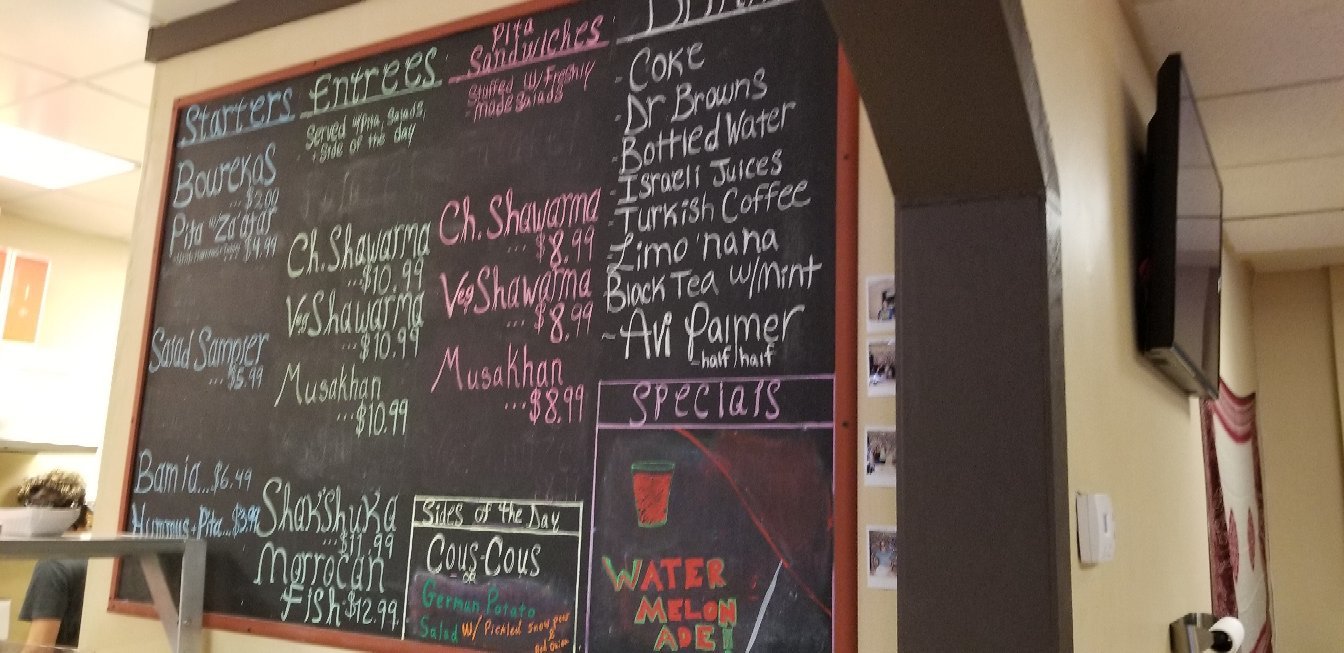 Starters
Bourekas
...$2.00
Pita w/ Za'atar
$4.99
Salad Sampler
...$5.99
Bamia...$6.49
Hummus + Pita...$3.99
Entrees
Served w/Pita, Salads,
+ Side of the day
Ch. Shawarma
...$10.99
Veg Shawarma
...$10.99
Musakhan
...$10.99
Shakshuka
...$11.99
Morrocan
Fish $12.99
Pita
Sandwiches
Stuffed w/Freshly
-made Salads
Ch. Shawarma
...$8.99
Veg Shawarma
...$8.99
Musakhan
...$8.99
- Coke
- Dr Browns
- Bottled Water
- Israeli Juices
- Turkish Coffee
- Limo'nana
- Black Tea w/Mint
- Avi Palmer
-half/half
Sides of the Day
Cous-Cous
or
German Potato
Salad w/ Pickled snow peas
&
Red Onion
Specials
WATER
MELON
ADE!